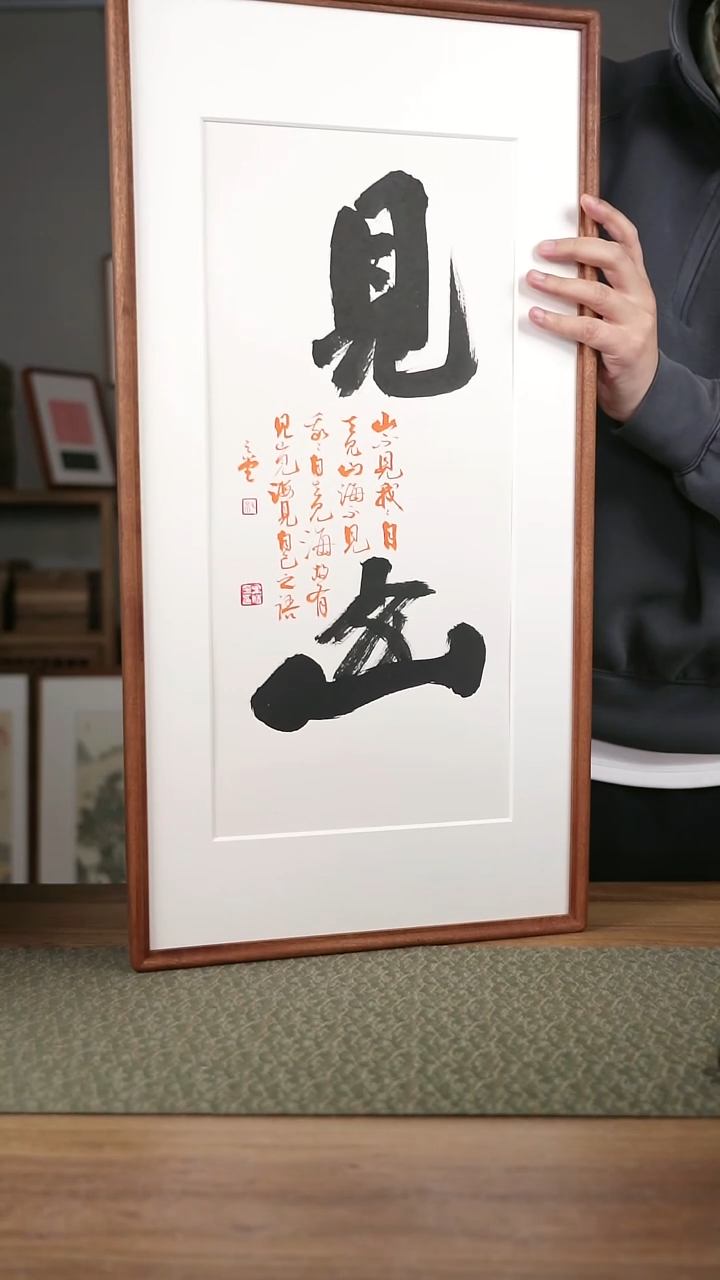 見山
山不見我〻自
去見山海不見
我〻自去見海故有
見山見海見自己之語